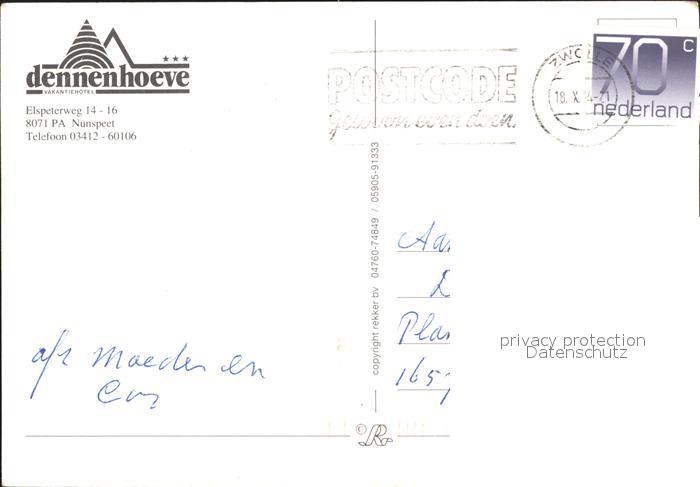 dennenhoeve
VAKANTIEHOTEL
Elspeterweg 14 - 16
8071 PA Nunspeet
Telefoon 03412 - 60106
POSTCODE
gewoon even doen.
ZWOLLE
18. X. 94-21
70 c
nederland
copyright rekker bv 04760-74849 / 05905-91333
Aan
Plan
165
privacy protection
Datenschutz
afz Moeder en
Cor
© R